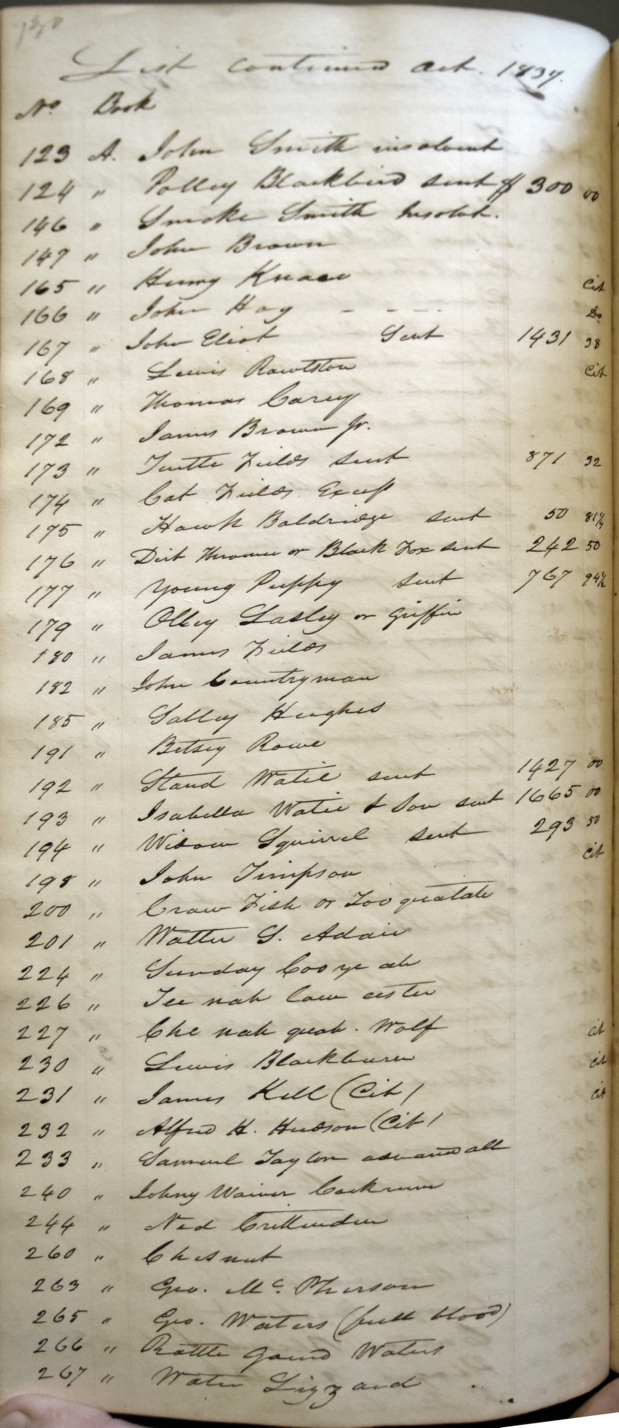 130
List continued Oct. 1837.
No Book
123 A. John Smith insolvent
124 " Polley Blackbird sent $ 300 00
146 " Smoke Smith Insolvt.
147 " John Brown
165 " Henry Cit
166 " John Hog - - - - Do
167 " John Eliot Sent 1431 38
168 " Lewis Rawlston Cit
169 " Thomas Carey
172 " James Brown Jr.
173 " Turtle Fields sent 871 32
174 " Cat Fields
175 " Hawk Baldridge sent 50 81½
176 " Dirt Thrower or Black Fox sent 242 50
177 " Young Puppy sent 767 94½
179 " Olley Lasley or Griffin
180 " James Fields
182 " John Countryman
185 " Salley Hughes
191 " Betsey Rowe
192 " Stand Watie sent 1427 00
193 " Isabella Watie & Son sent 1665 00
194 " Widow Squirrel sent 293 50
198 " John Timpson cit
200 " Craw Fish or Too quatale
201 " Walter S. Adair
224 " Sunday Coo ye ah
226 " Tee nah law
227 " Che nah quah. Wolf
230 " Lewis Blackburn cit
231 " James Kell (Cit) cit
232 " Alfred H. Hudson (Cit) cit
233 " Samuel Taylor
240 " Johny Waiver Cockrum
244 " Ned Crittenden
260 " Chesnut
263 " Geo. Mc. Pherson
265 " Geo. Waters (full blood)
266 " Rattle Gourd Waters
267 " Water Lizzard